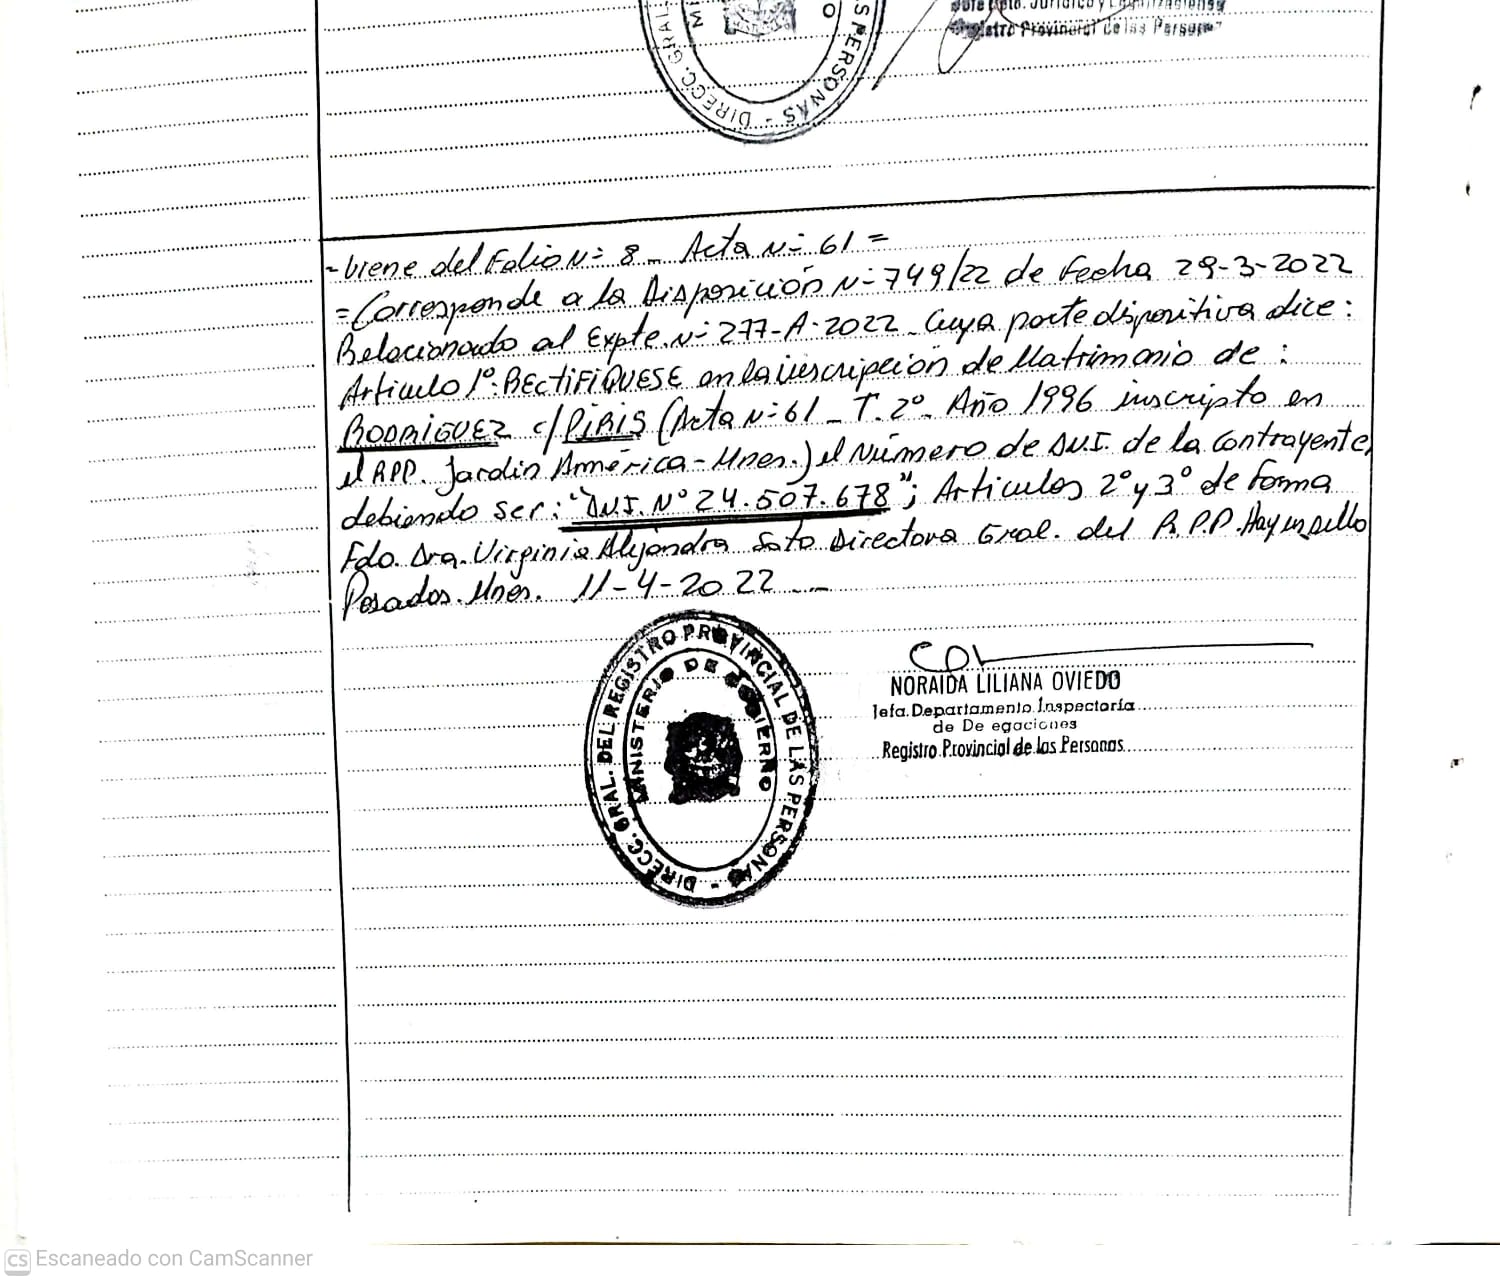 DIRECC. GRAL. PERSONAS
Jefe Dpto. Jurídico y
Registro Provincial de las Personas
- viene del Folio Nº 8 - Acta Nº 61 =
= Corresponde a la Disposición Nº 749/22 de fecha 29-3-2022
Relacionado al Expte. Nº 277-A-2022 - Cuya parte dispositiva dice:
Artículo 1º: RECTIFIQUESE en la inscripción de Matrimonio de:
RODRIGUEZ c/ PIRIS (Acta Nº 61 - T. 2º - Año 1996 inscripto en
el RPP. Jardín América - Mnes.) el Número de D.N.I. de la contrayente,
debiendo ser: "D.N.I. Nº 24.507.678"; Artículos 2º y 3º de forma
Fdo. Dra. Virginia Alejandra Soto Directora Gral. del R.P.P. Hay un sello
Posadas. Mnes. 11-4-2022 --
DIRECC. GRAL. DEL REGISTRO PROVINCIAL DE LAS PERSONAS -
MINISTERIO DE GOBIERNO
NORAIDA LILIANA OVIEDO
Jefa Departamento Inspectoría
de De egaciones
Registro Provincial de las Personas
CS Escaneado con CamScanner